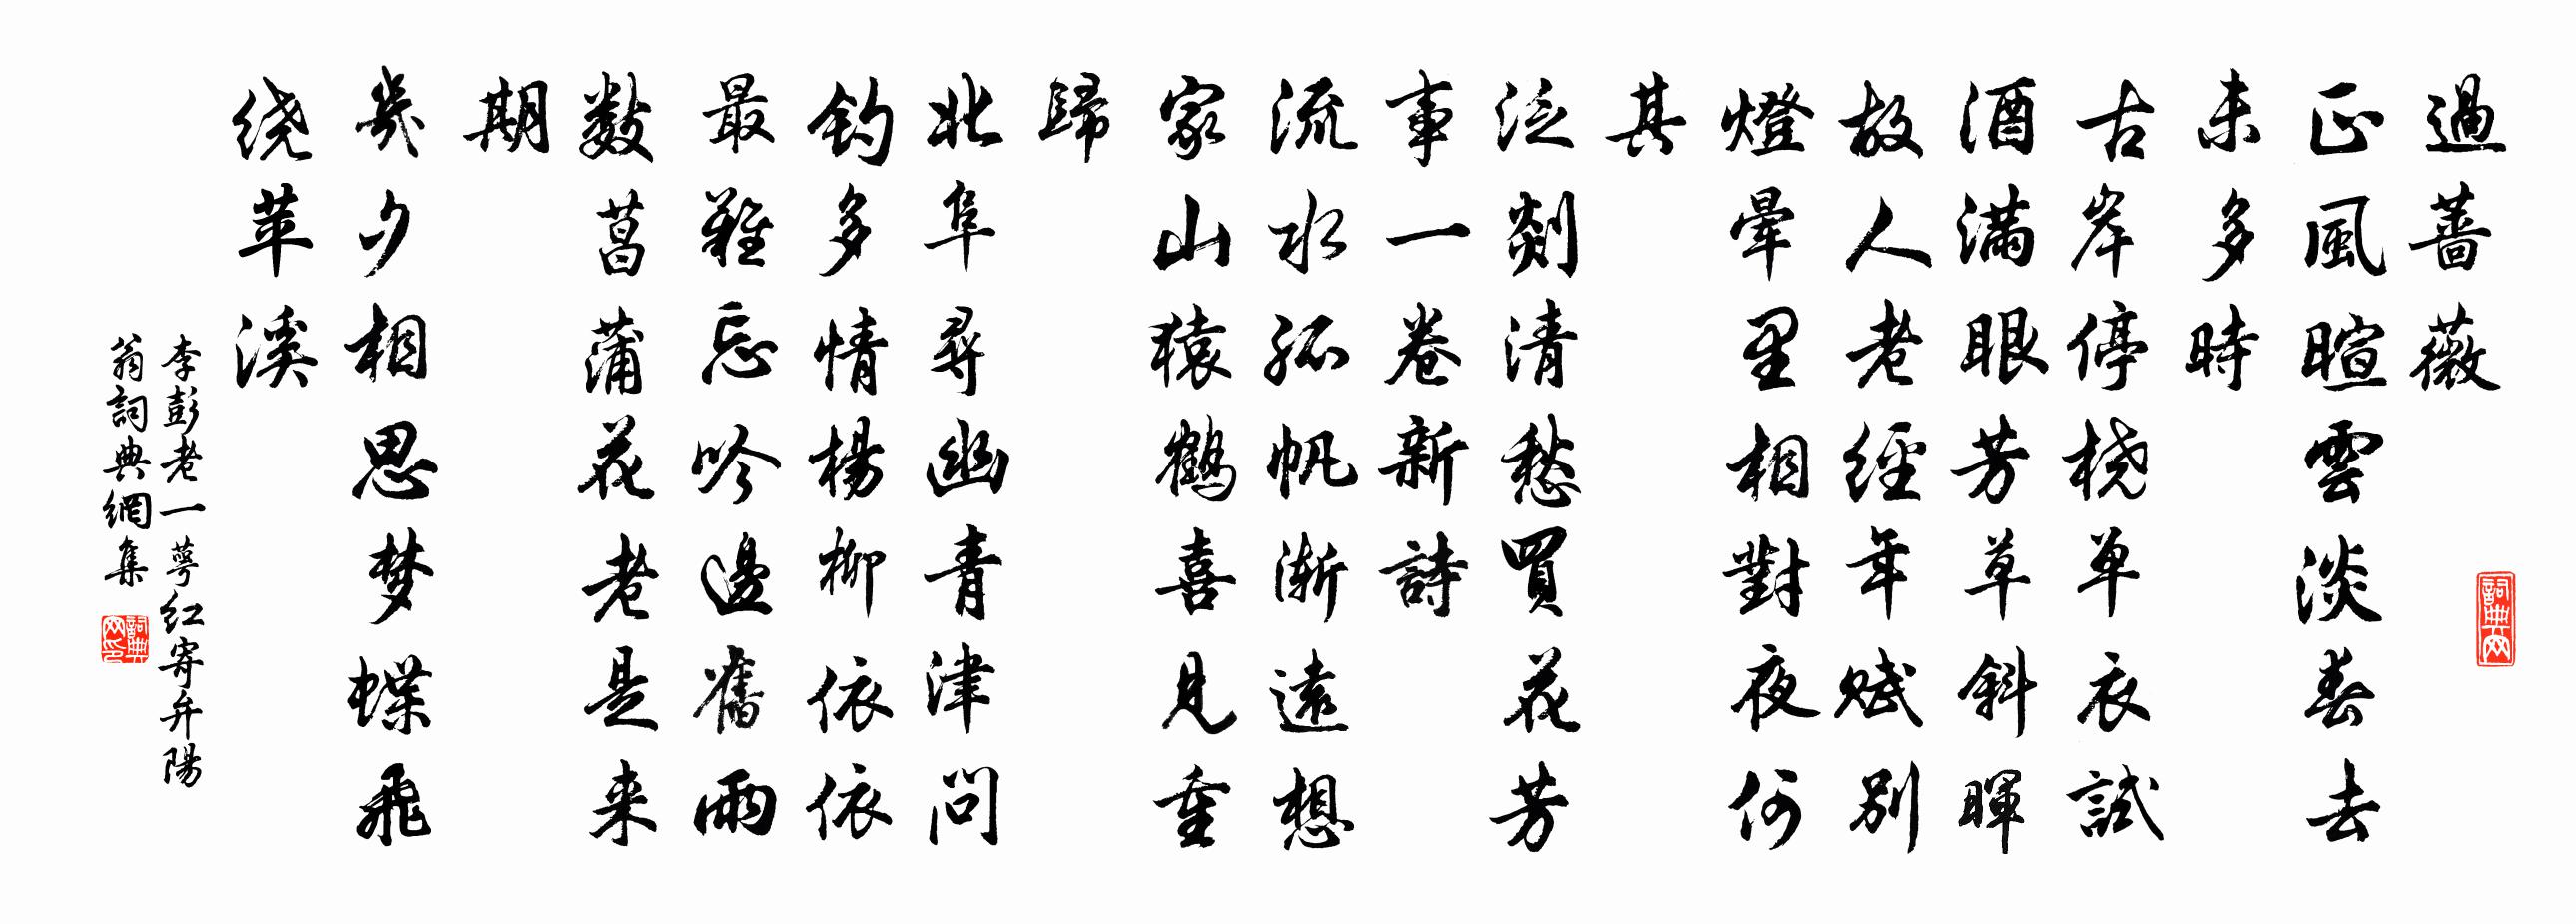 過薔薇
正風暄雲淡春去
未多時
古岸停桡单衣試
酒满眼芳草斜暉
故人老經年賦别
燈暈里相對夜何
其
泛剡清愁買花芳
事一卷新詩
流水孤帆渐遠想
家山猿鶴喜見重
歸
北阜尋幽青津問
钓多情楊柳依依
最難忘吟邊舊雨
数菖蒲花老是来
期
幾夕相思梦蝶飛
绕苹溪
李彭老一萼红寄弁陽
翁詞典網集
詞典网
詞典网印